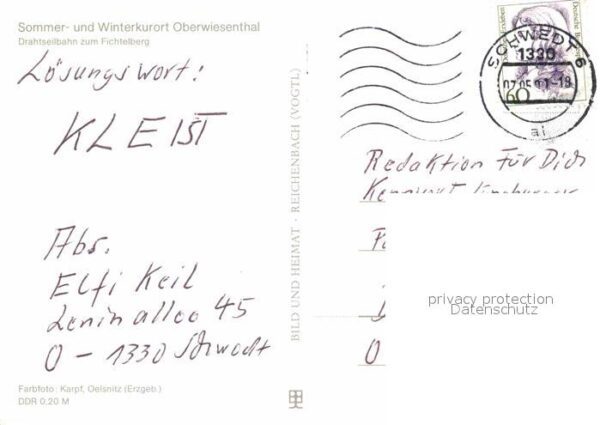 Sommer- und Winterkurort Oberwiesenthal
Drahtseilbahn zum Fichtelberg
Lösungswort:
KLEIST
Abs.
Elfi Keil
Leninallee 45
O - 1330 Schwedt
Farbfoto: Karpf, Oelsnitz (Erzgeb.)
DDR 0,20 M
BILD UND HEIMAT · REICHENBACH (VOGTL)
SCHWEDT 6
1330
ai
60
Redaktion Für Dich
Kennwort
O
privacy protection
Datenschutz